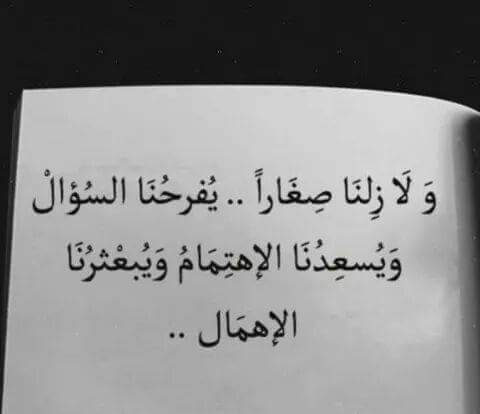 وَ لَا زِلنَا صِغَاراً .. يُفرحُنَا السُؤالْ
وَيُسعِدُنَا الإهتِمَامُ وَيُبعْثرُنَا
الإهمَال ..